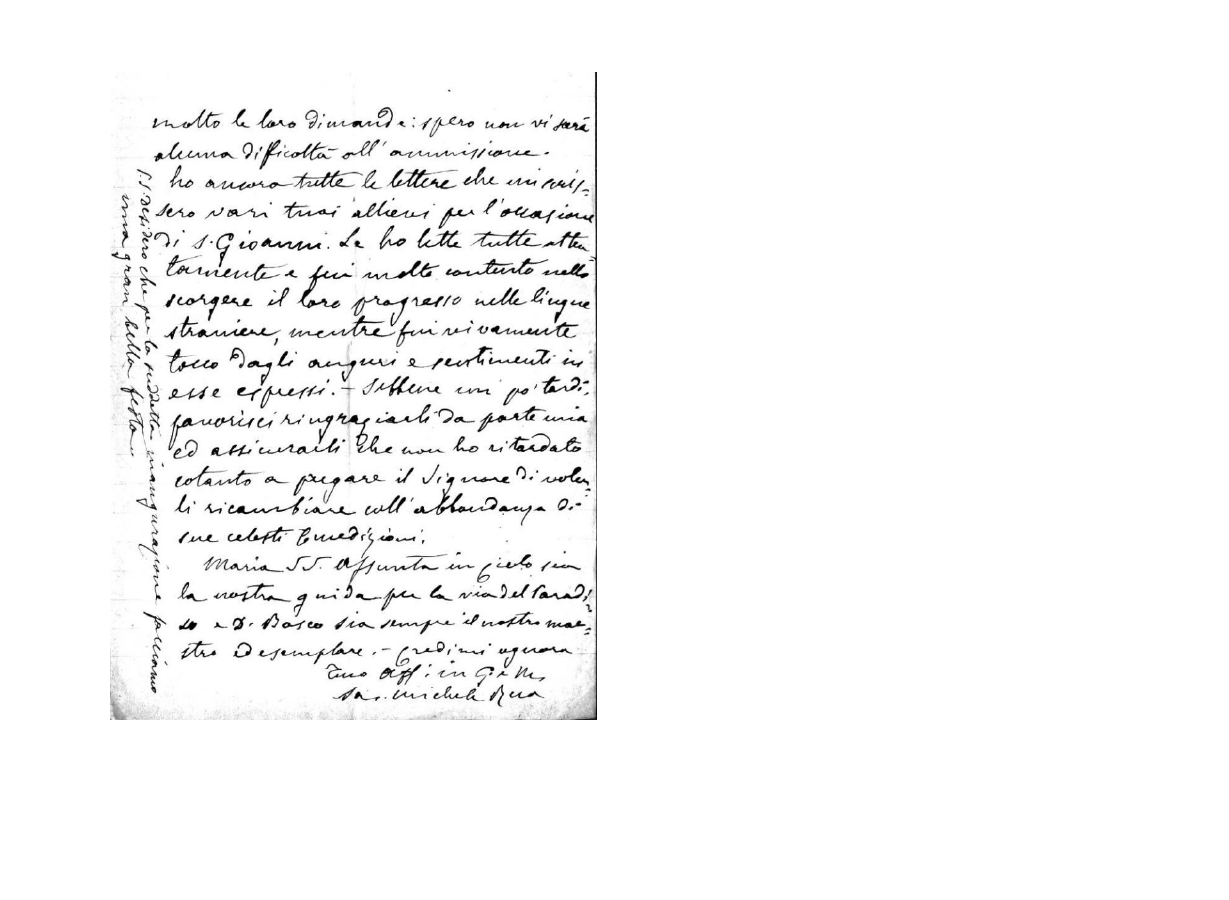 molto le loro dimande: spero non vi sarà
alcuna difficoltà all'ammissione.
ho ancora tutte le lettere che mi scris-
sero vari tuoi allievi per l'occasione
di S. Gioanni. Le ho lette tutte atten-
tamente e fui molto contento nello
scorgere il loro progresso nelle lingue
straniere, mentre fui vivamente
tocco dagli auguri e sentimenti in
esse espressi. - Sebbene un po' tardi,
favorisci ringraziarli da parte mia
ed assicurarli che non ho ritardato
cotanto a pregare il Signore di voler-
li ricambiare coll'abbondanza di
sue celesti benedizioni.
Maria SS. Assunta in Cielo sia
la nostra guida per la via del Paradi-
so e D. Bosco sia sempre il nostro mae-
stro ed esemplare. - Credimi ognora
Tuo aff: in G. e M.
Sac. Michele Rua
P.S. Desidero che per la suddetta inaugurazione facciamo
una gran bella festa.